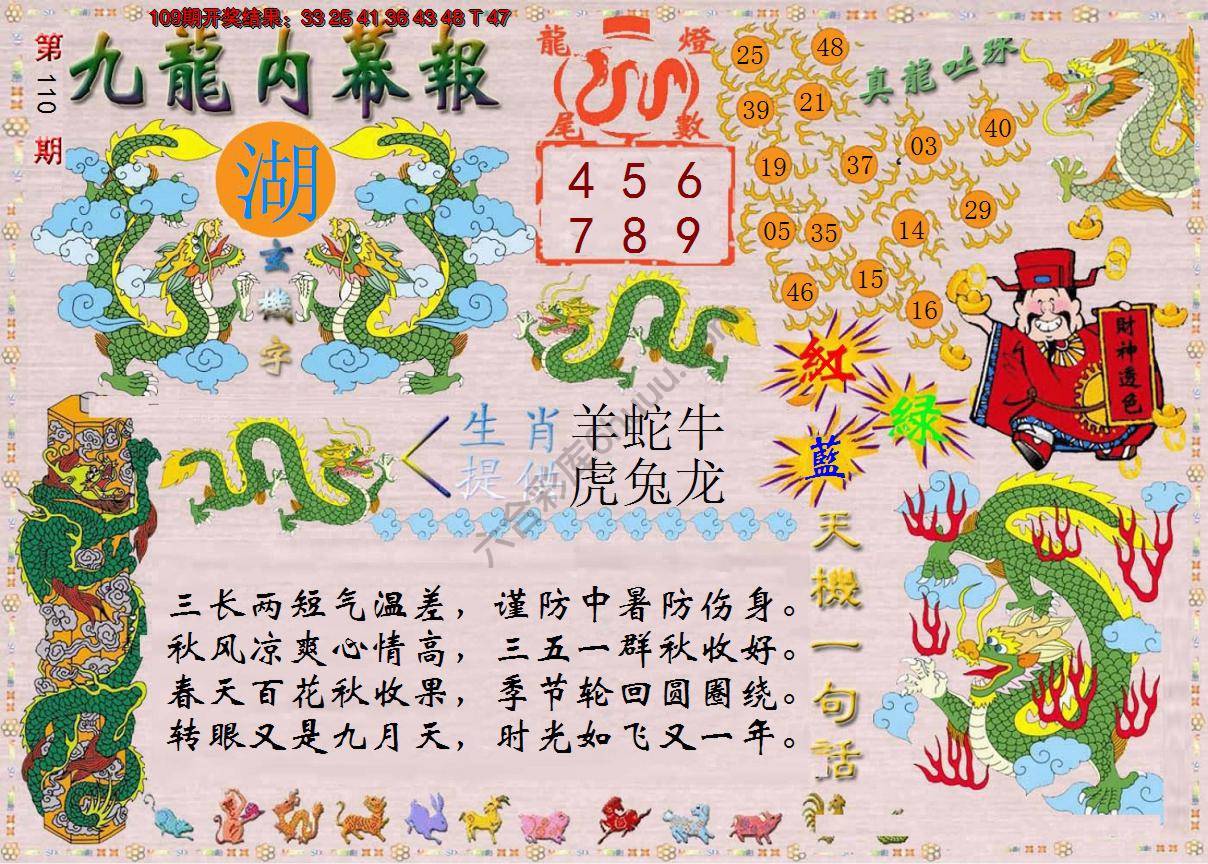 109期开奖结果：33 25 41 36 43 48 T 47
第110期
九龍内幕報
湖
玄機字
龍燈
尾數
4 5 6
7 8 9
真龍吐珠
25 48
39 21
19 37 03 40
05 35 14 29
46 15 16
紅
綠
藍
財神透色
生肖 羊蛇牛
提供 虎兔龙
三长两短气温差，谨防中暑防伤身。
秋风凉爽心情高，三五一群秋收好。
春天百花秋收果，季节轮回圆圈绕。
转眼又是九月天，时光如飞又一年。
天機一句話